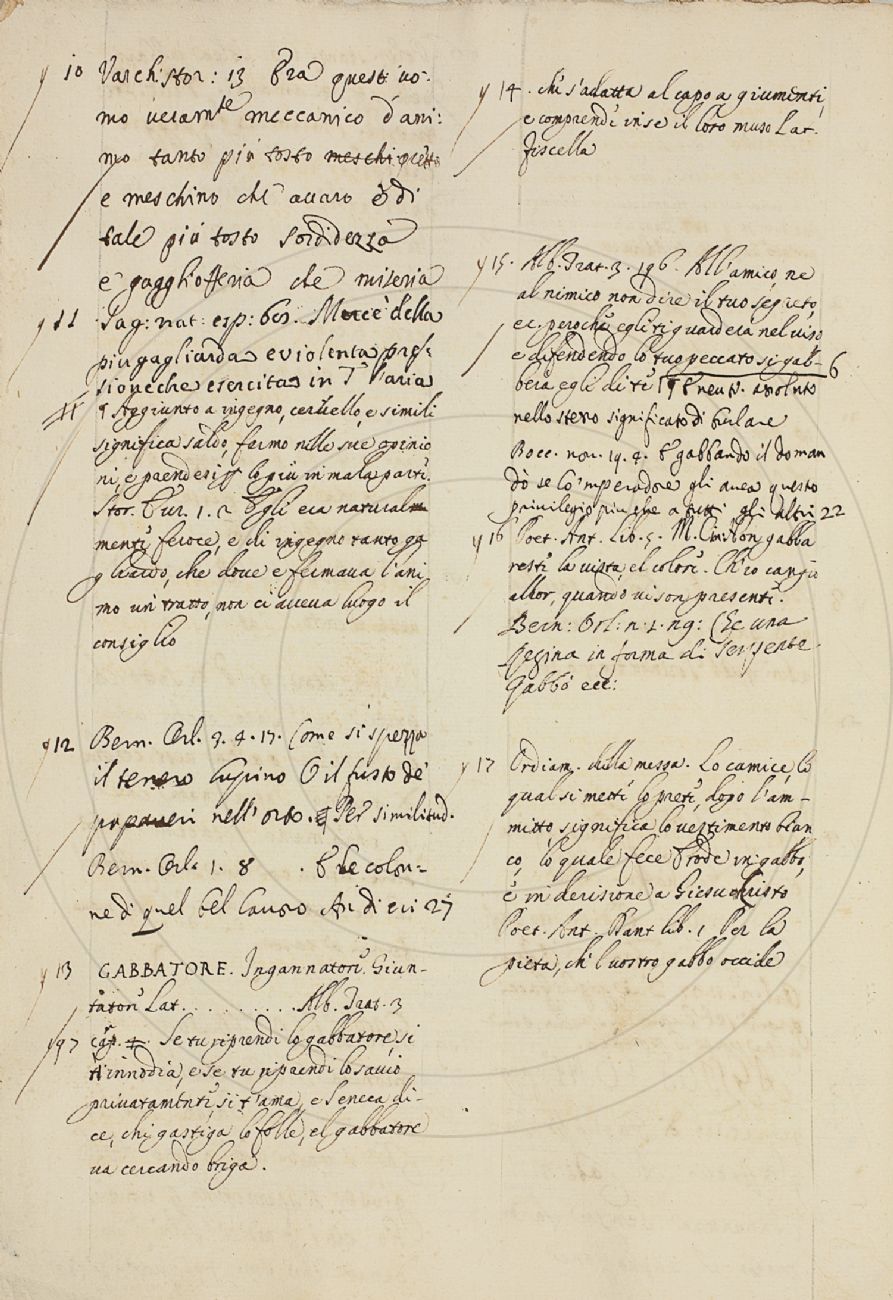 10 Varch. Stor: 13 Era questi uo-
mo veramte meccanico d'ani:
mo tanto più tosto
e meschino ch'avaro e di
tale più tosto sordidezza
e gagliofferia che miseria
11 Sag: nat: esp: 60. Mercè della
più gagliarda e violenta pres-
sione che esercita in l'aria
¶ Aggiunto a ingegno, cervello, e simili
significa saldo, fermo nelle sue opinio
ni, e prendesi lo più in mala parte.
Stor. Eur. 1. 2 Egli era natural
mente feroce, e di ingegno tanto ga
gliardo, che dove e fermava l'ani
mo un tratto, non ci aveva luogo il
consiglio
12 Bern. Orl. 2. 4. 17. Come si spezza
il tenero lupino O il fusto de'
papaveri nell'orto. ¶ Per similitud.
Bern. Orl. 1. 8 . E le colon-
ne di quel bel lavoro
13 GABBATORE. Ingannatore. Giun-
tatore Lat. . . . . . . . . . Alb. Trat. 3
97 cap. Se tu riprendi lo gabbatore, si
t'innodia, e se tu riprendi lo savio
privatamente, si t'ama, e Seneca di-
ce, chi gastiga lo folle, e'l gabbatore
va cercando briga.
14. chi s'adatta al capo a giumenti,
e comprende in se il loro muso Lat.
fiscella
15. Alb. Trat. 3. 196. All'amico, ne
al nimico non dire il tuo segreto,
ec. perochè egli ti guarderà nel viso
e difendendo lo tuo peccato si gab-
berà egli di te ¶ E neut. assoluto 6
nello stesso significato di burlare
Bocc. nov. 19. 4. E gabbando il doman
dò se lo 'mperadore gli avea questo
privilegio più che a tutti gli altri 22
16 Poet. Ant. Lib. 5. M. Cin. Non gabba
reste la vista, e'l colore. Ch'io cangio
allor, quando vi son presente.
Bern: Orl: Che una
Regina in forma di Serpente
Gabbò ecc:
17 Ordiam. della messa. Lo camice, lo
qual si mette lo prete, dopo l'am-
mitto, significa lo vestimento bian
co, lo quale fece Erode in gabbo,
e in derisione a Giesu Christo
Poet. Ant. Dant. lib. 1 Per la
pieta, che 'l vostro gabbo occide